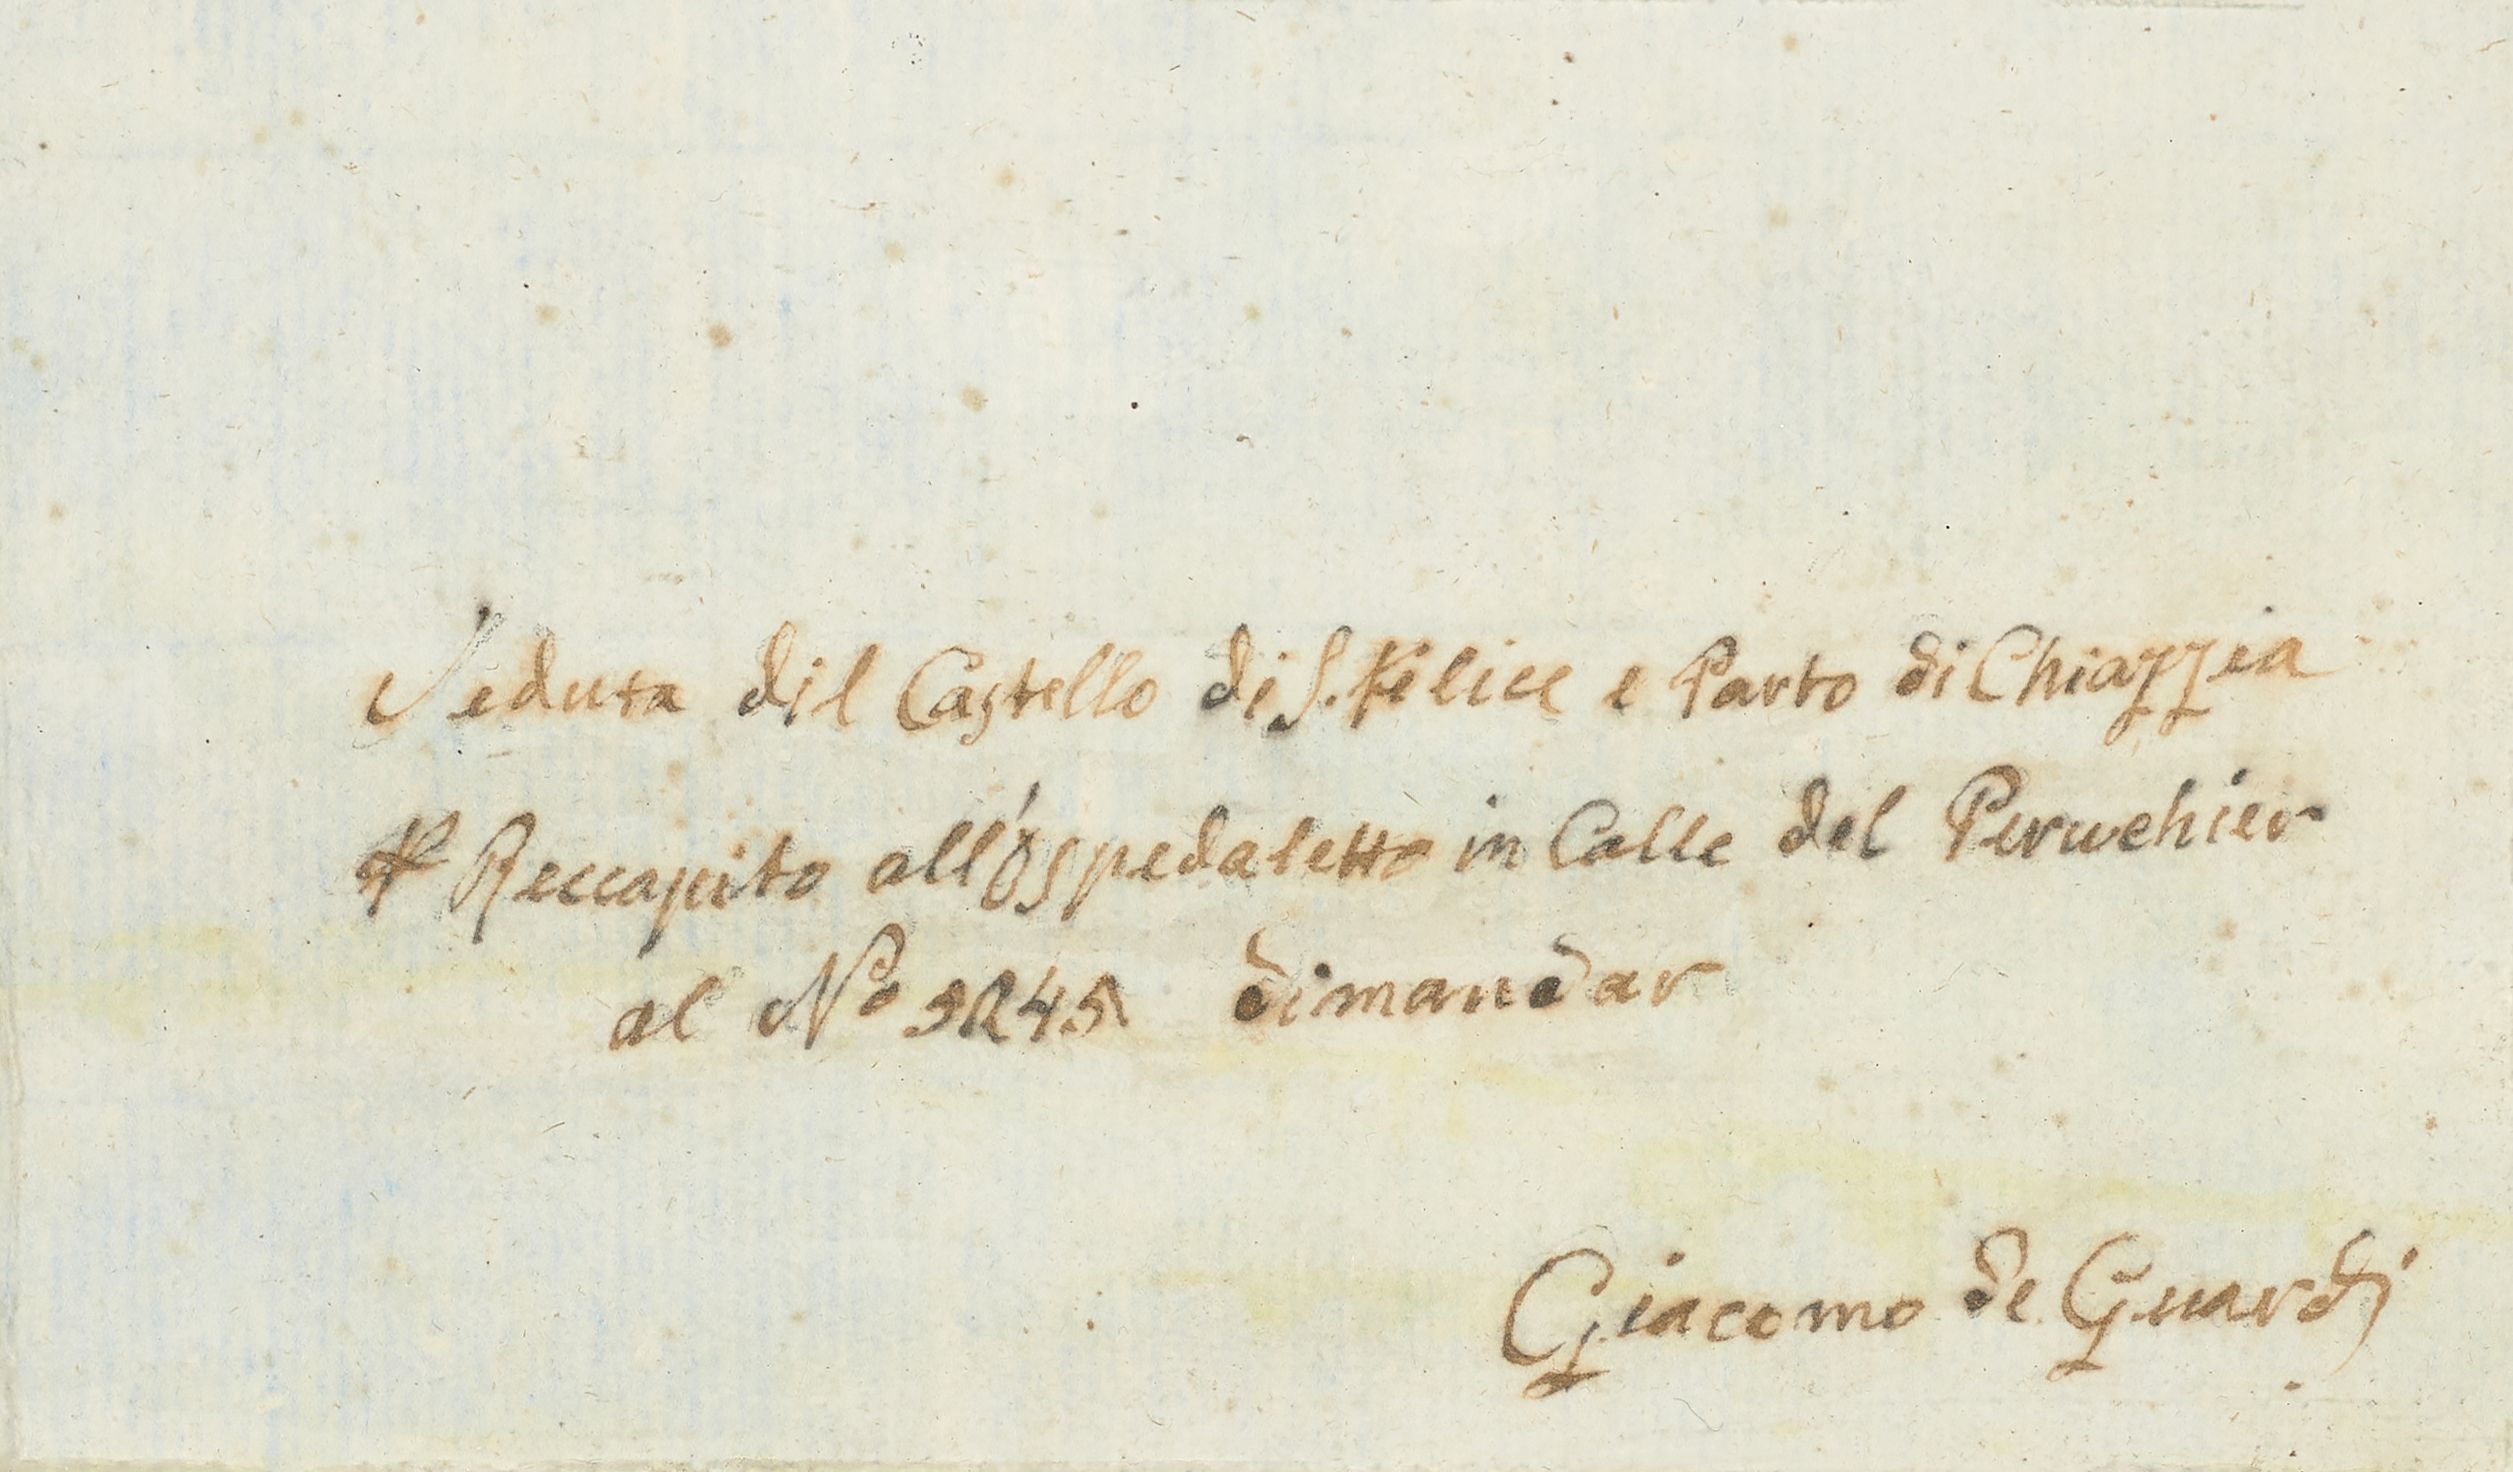 Veduta dil Castello di S. Felice e Parto di Chiazzia
Reccapito all'Ospedaletto in Calle del Peruchier
al No 5245 dimandar
Giacomo de Guardi